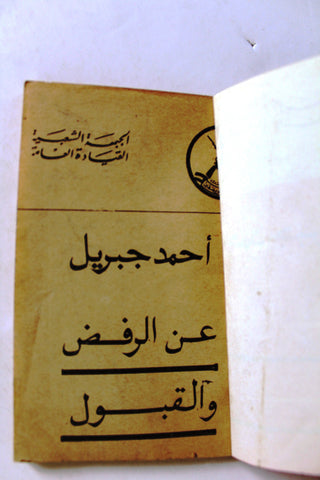 الجبهة الشعبية
القيادة العامة
أحمد جبريل
عن الرفض
والقبول